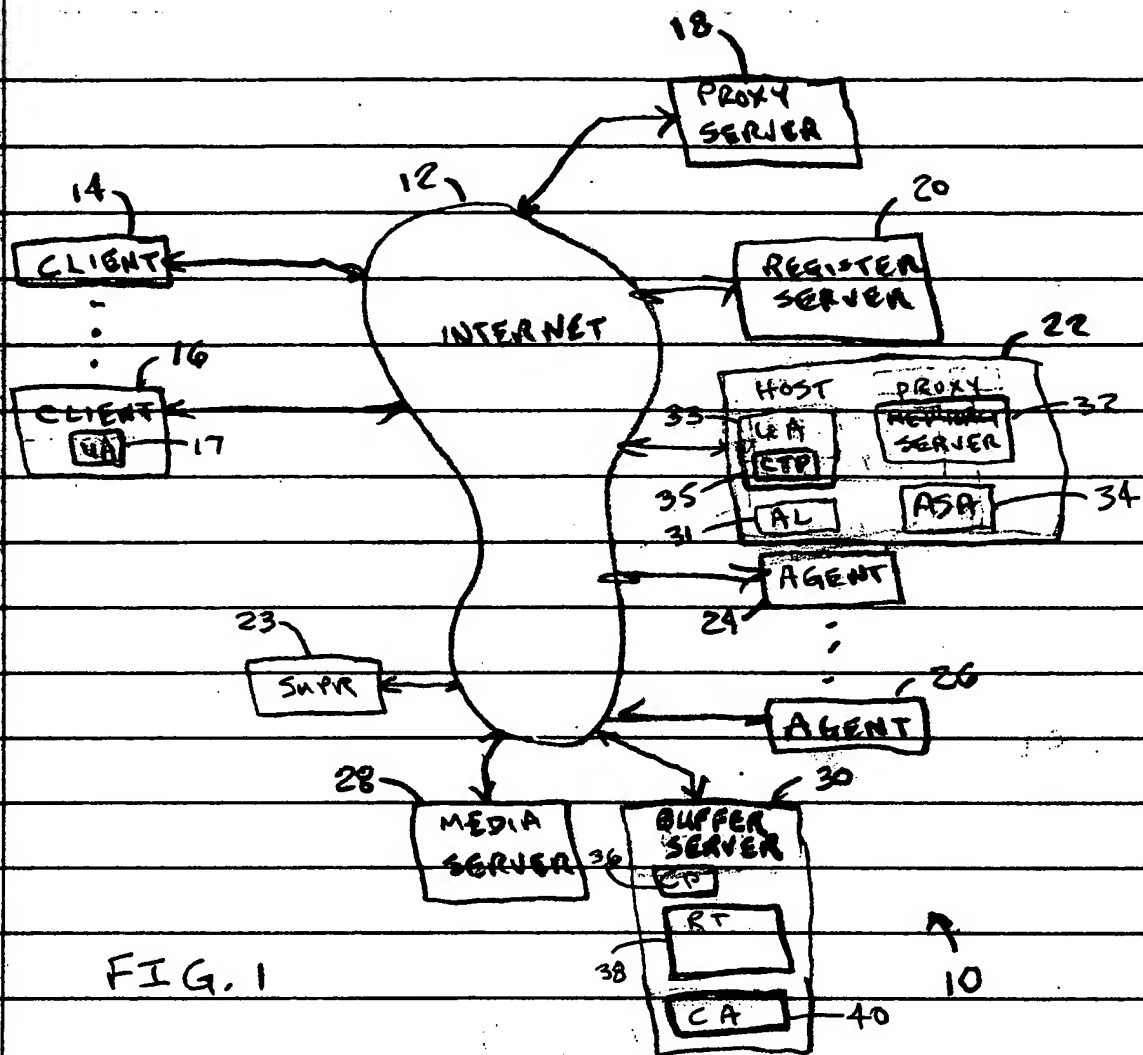 18
PROXY
SERVER
14
12
20
CLIENT
REGISTER
SERVER
INTERNET
16
22
CLIENT
UA
17
HOST
PROXY
33
UA
SERVER
32
CTP
35
AL
31
ASA
34
AGENT
24
23
SUPR
26
AGENT
28
MEDIA
SERVER
30
BUFFER
SERVER
36
CP
RT
38
CA
40
10
FIG. 1